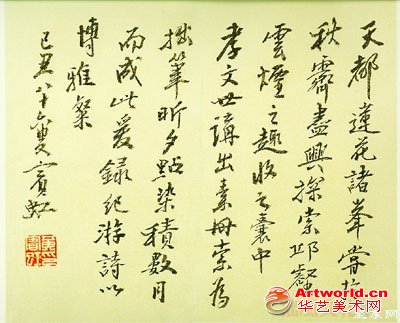 天都蓮花諸峯嘗於
秋霽盡興探索邱壑
雲煙之趣收之囊中
孝文世講出素冊索為
拙筆昕夕點染積數月
而成此爰錄紀游詩以
博雅粲
己丑八十六叟賓虹
Artworld.cn
华艺美术网